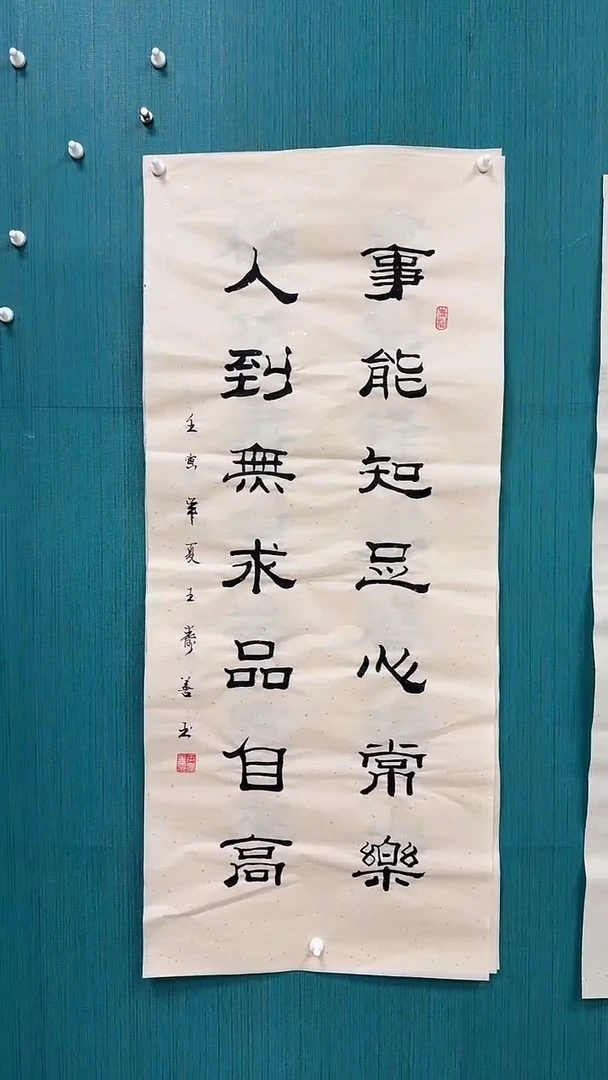 事能知足心常樂
人到無求品自高
壬寅年夏王壽善书